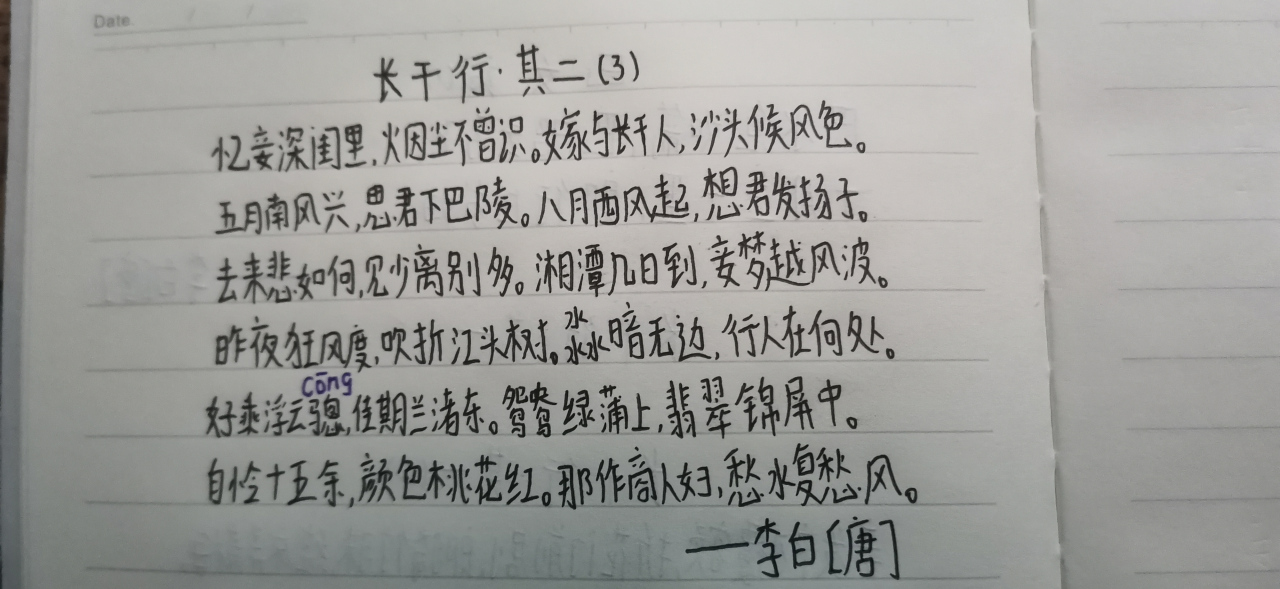 Date.
长干行·其二(3)
忆妾深闺里,烟尘不曾识。嫁与长干人,沙头候风色。
五月南风兴,思君下巴陵。八月西风起,想君发扬子。
去来悲如何,见少离别多。湘潭几日到,妾梦越风波。
昨夜狂风度,吹折江头树。淼淼暗无边,行人在何处。
cōng
好乘浮云骢,佳期兰渚东。鸳鸯绿蒲上,翡翠锦屏中。
自怜十五余,颜色桃花红。那作商人妇,愁水复愁风。
——李白[唐]